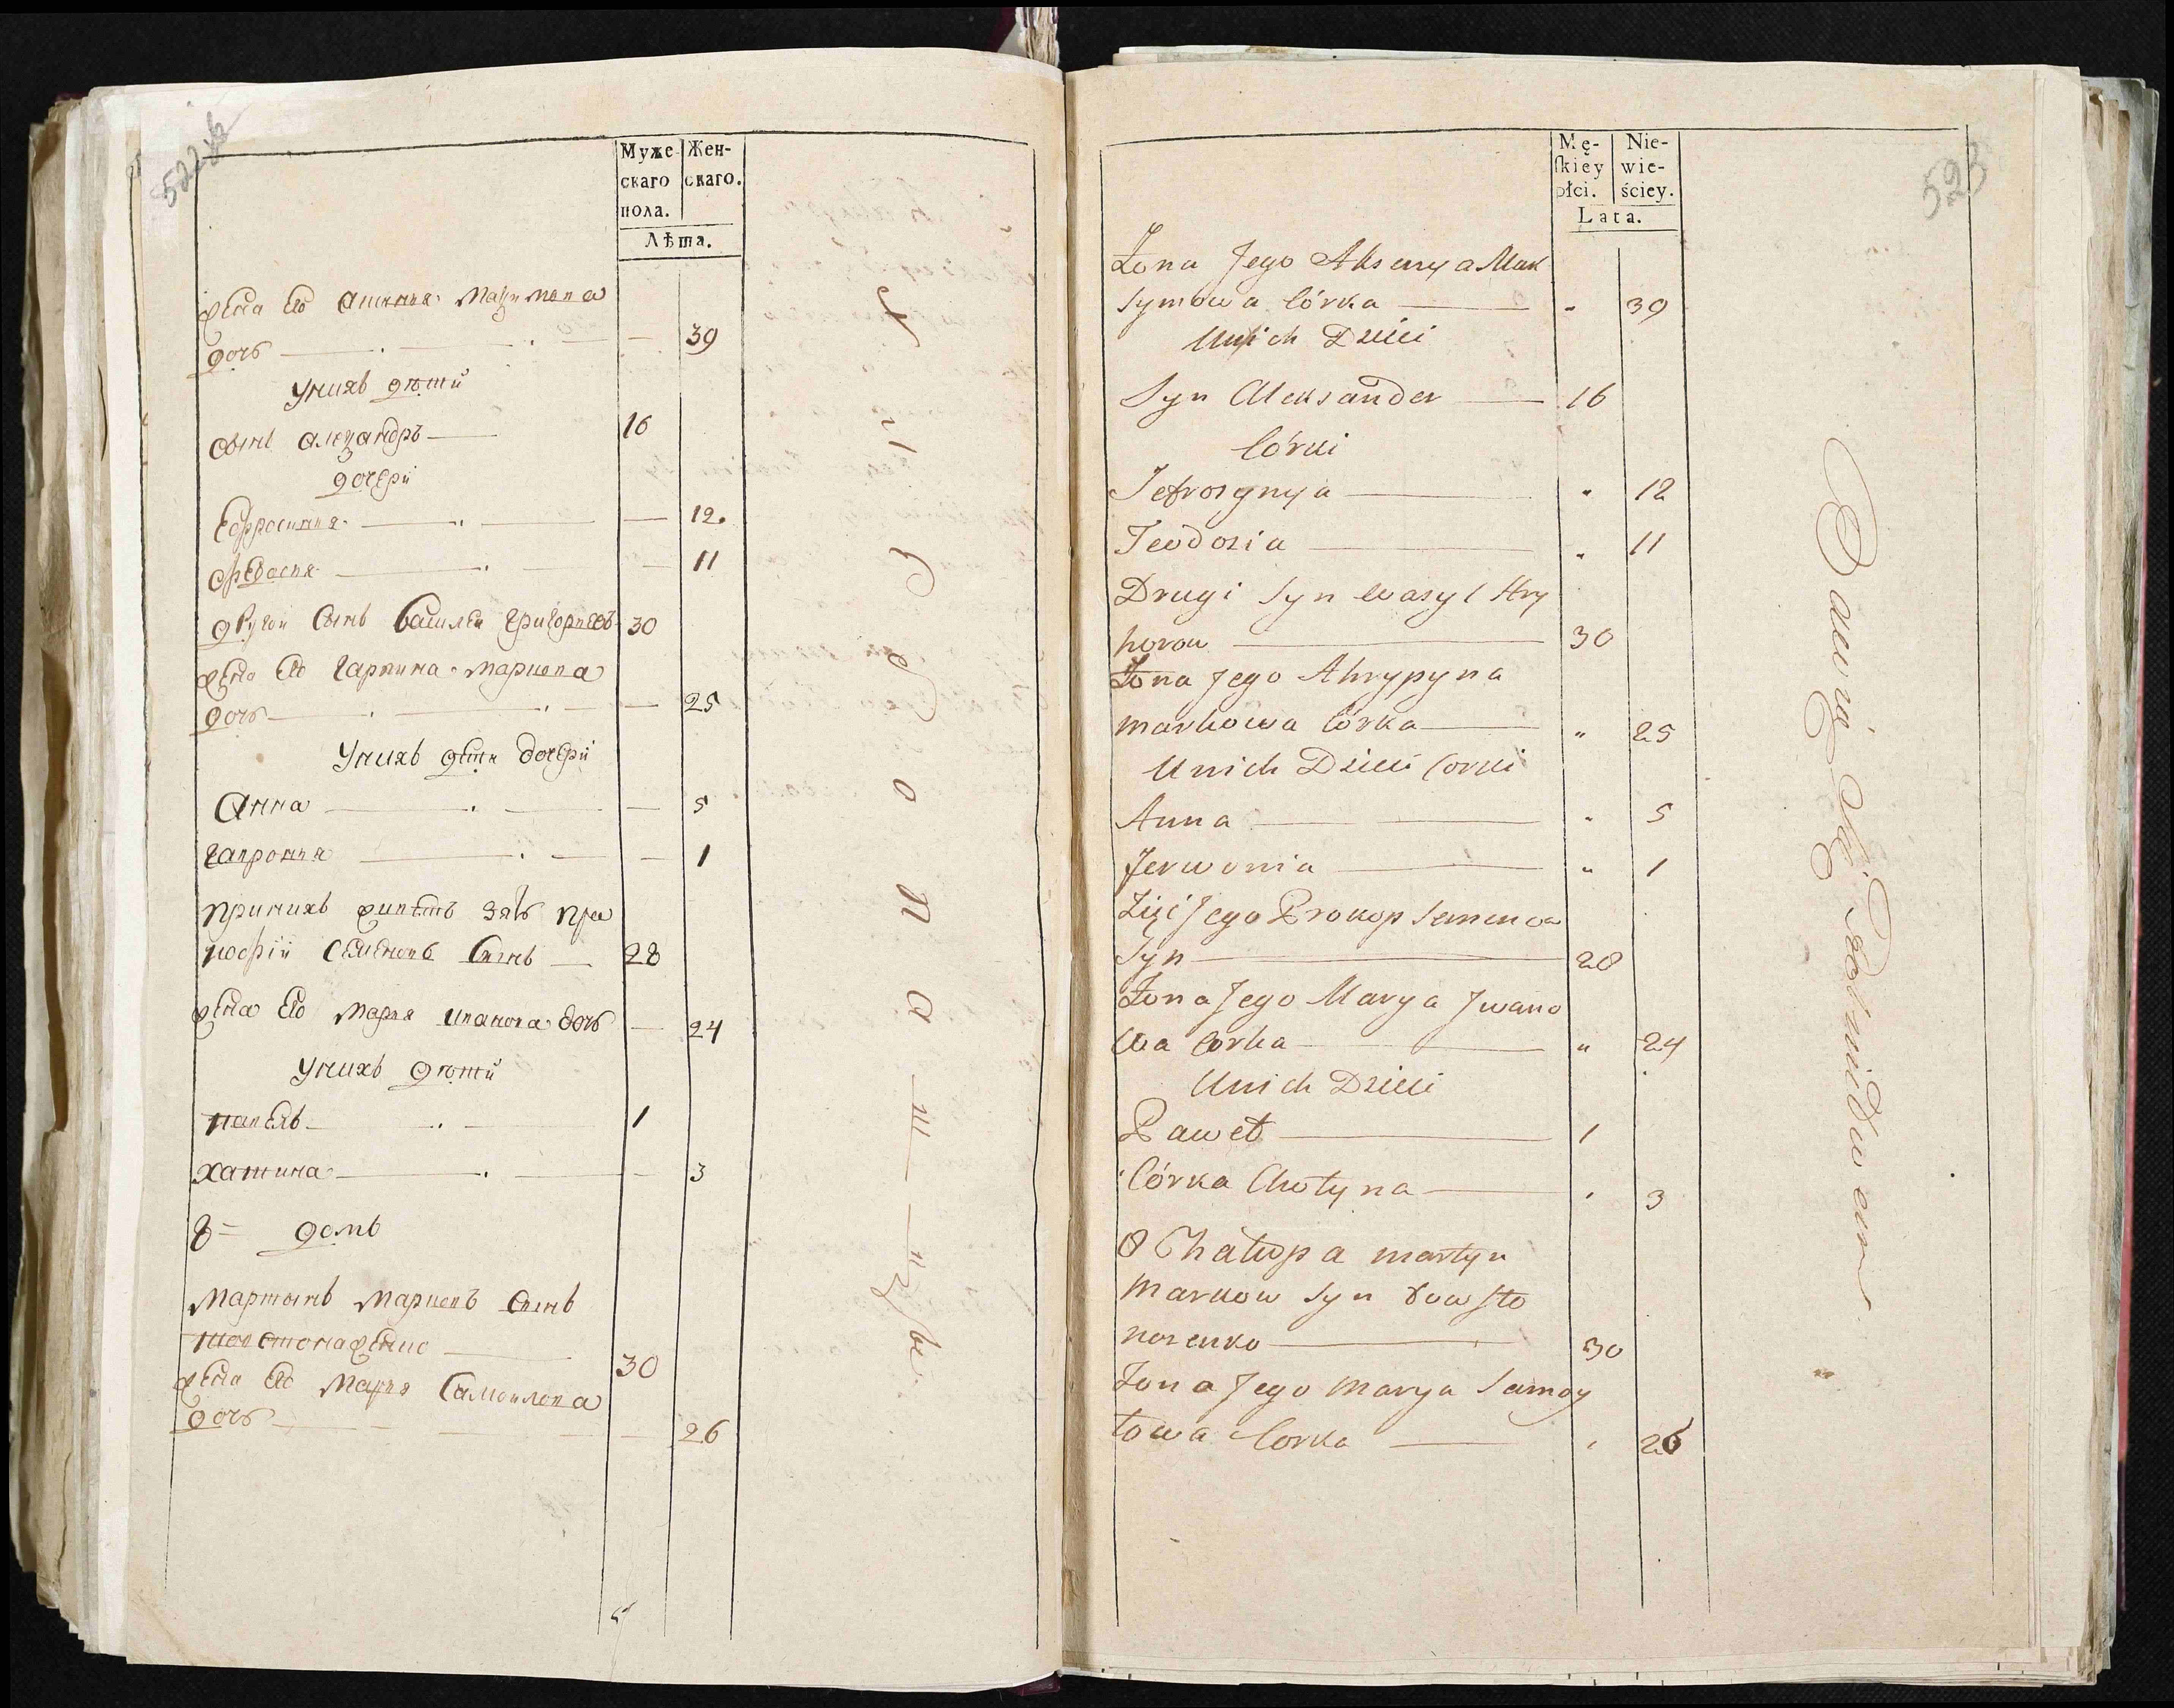 522
Муже-
скаго
пола.
Жен-
скаго.
Лѣта.
жена его Максимова
дочь — 39
Унихъ дѣти
сынъ алеѯандръ — 16
дочери
Ефросиния — 12.
Федосия — 11
другои сынъ василеи григориевъ 30
жена его Маркова
дочь — 25
Унихъ дети дочери
Анна — 5
1
принихъ живетъ зять про
кофiи семеновъ сынъ — 28
жена его Мария иванова дочь — 24
Унихъ дѣти
павелъ — 1
хатина — 3
8 = домъ
Мартынъ Марковъ сынъ
30
жена его Мария самоилова
дочь — 26
523
Mę-
skiey
płci.
Nie-
wie-
ściey.
Lata.
Żona Jego Aksenya Mak
symowa Córka — " 39
Unich Dzieci
Syn Aleksander — 16
Córki
Jefrosynya — " 12
Teodozia — " 11
Drugi Syn Wasyl Hry
horow — 30
Żona Jego Ahrypyna
Markowa Córka — " 25
Unich Dzieci Corki
Anna — " 5
Jerwonia — " 1
Zięć Jego Prokop Semenow
Syn — 28
Żona Jego Marya Jwano
wa Corka — " 24
Unich Dzieci
Paweł — 1
Córka Chotyna — " 3
8 Chałupa Martyn
Markow Syn Towsto
nozenko — 30
Żona Jego Marya Samoy
łowa Corka — " 26